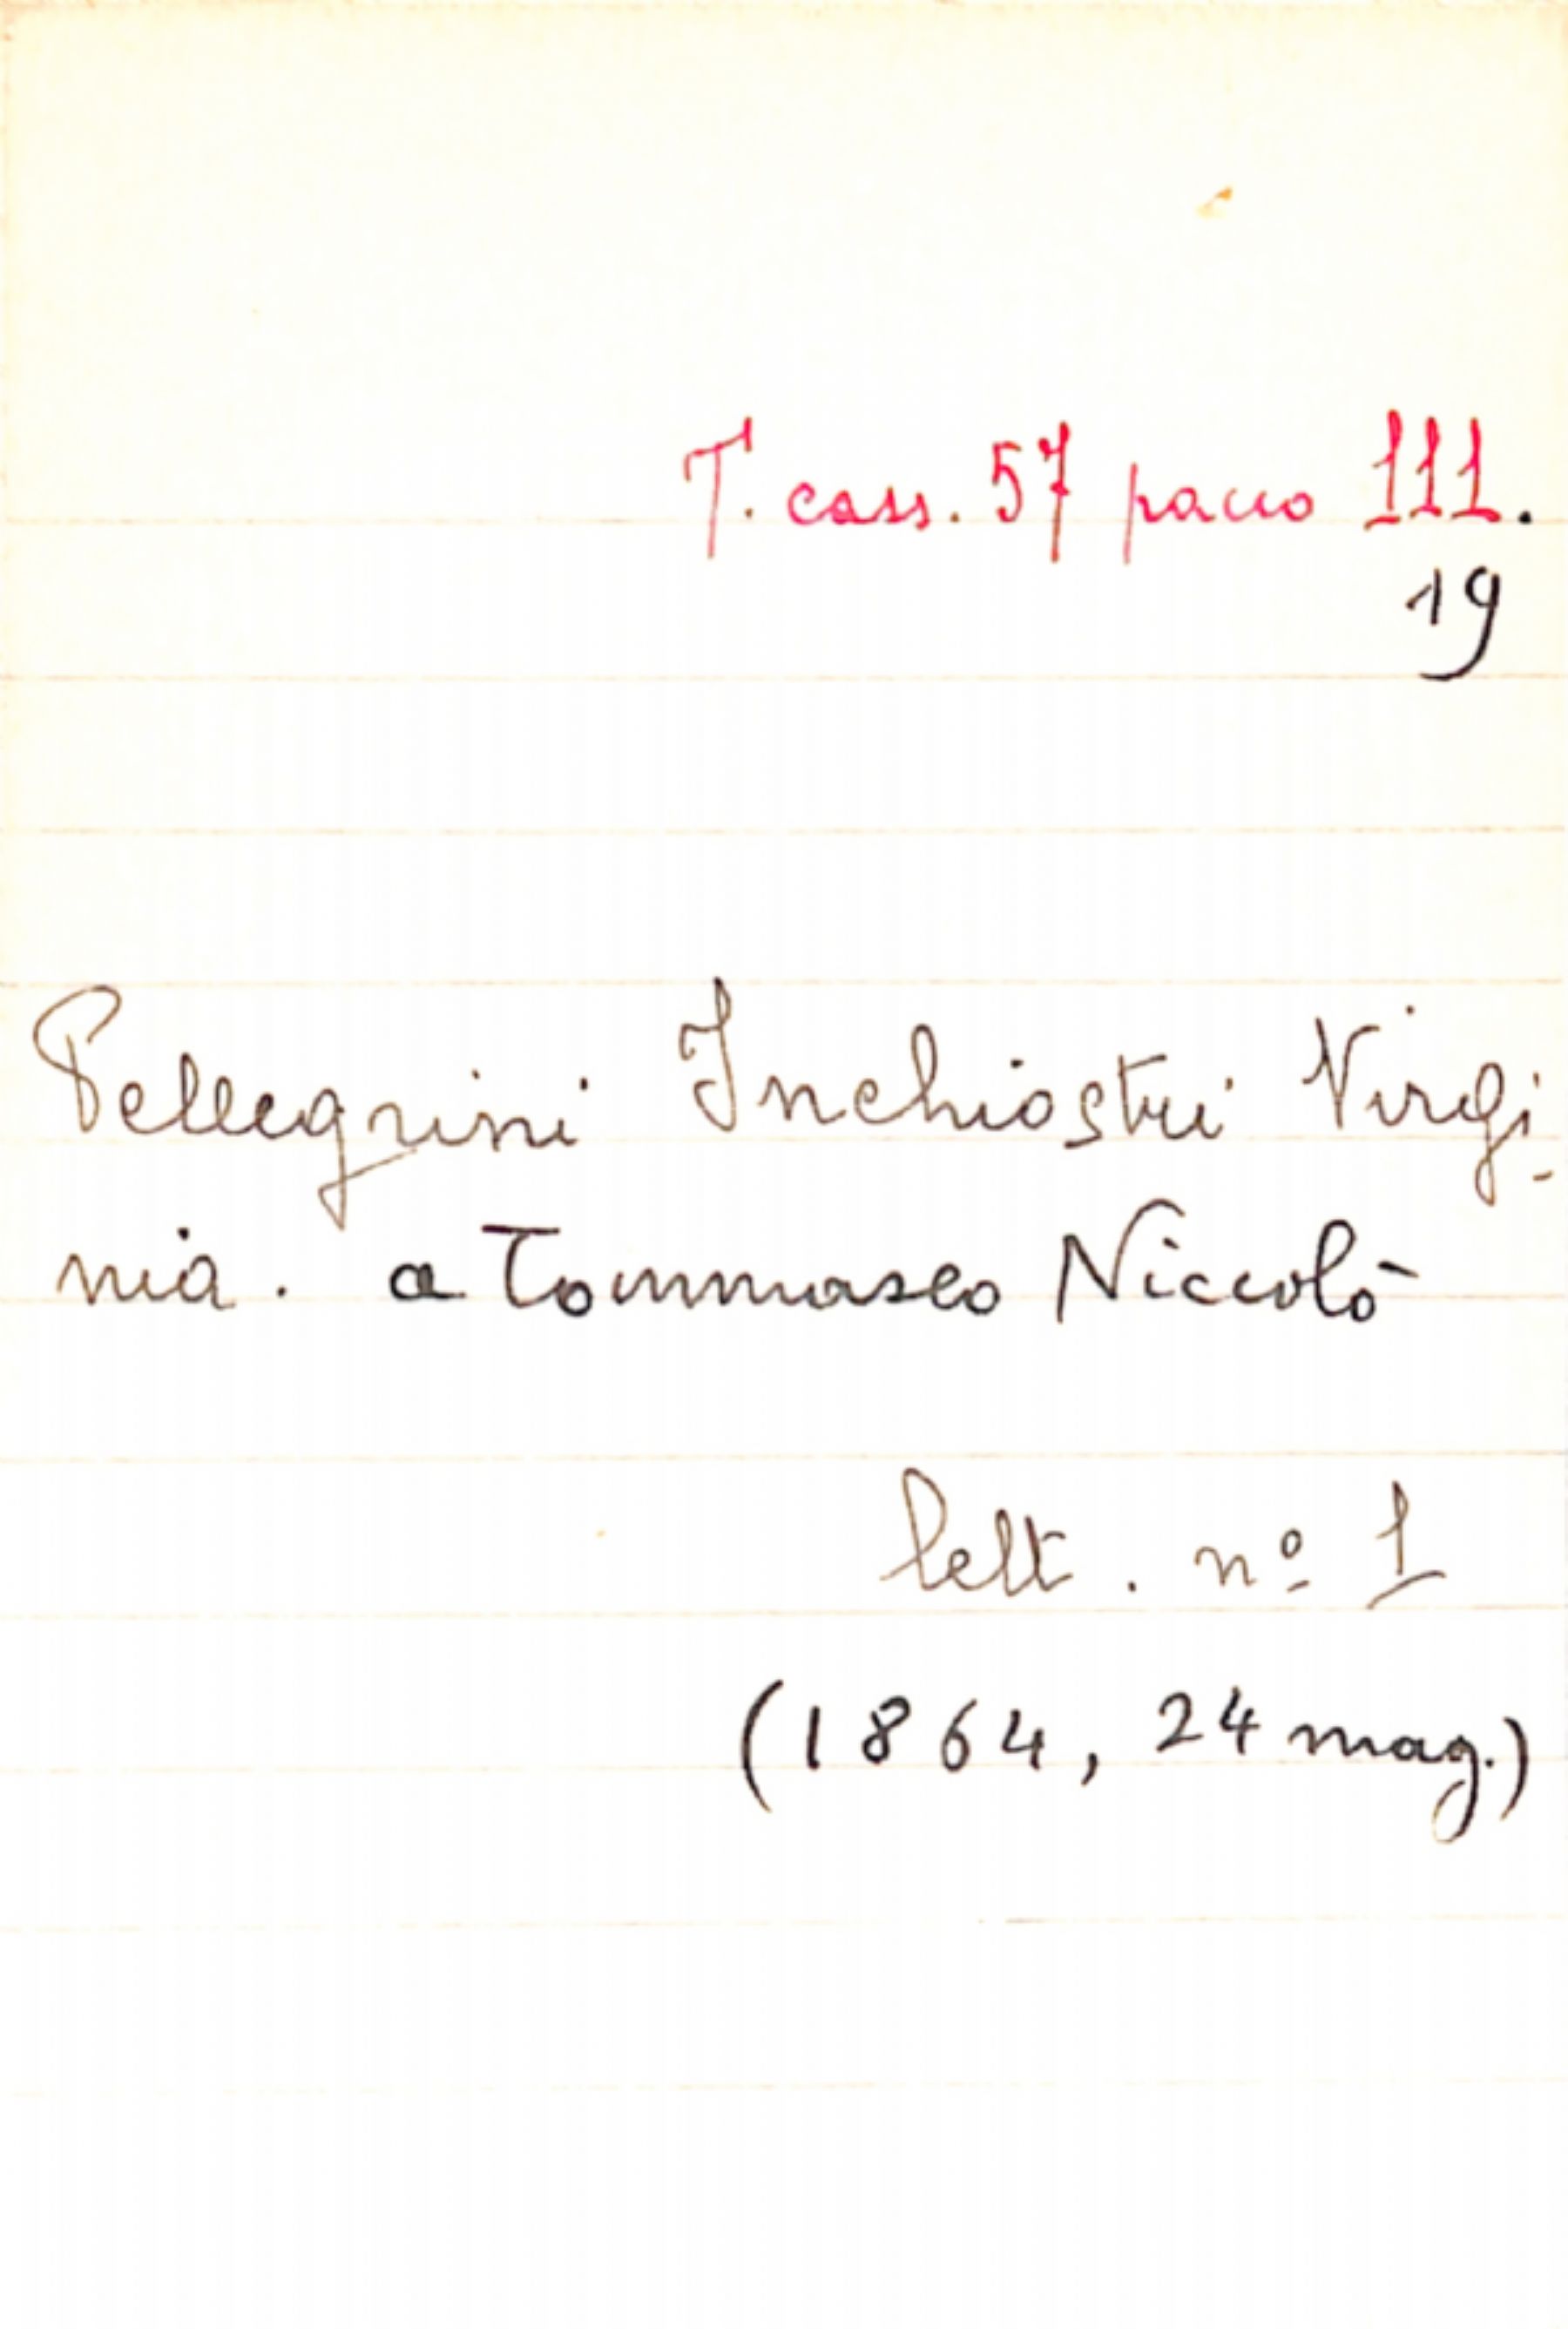 T. cass. 57 pacco 111.
19
Pellegrini Inchiostri Virgi-
nia. a Tommaseo Niccolò
lett. nº 1
(1864, 24 mag.)